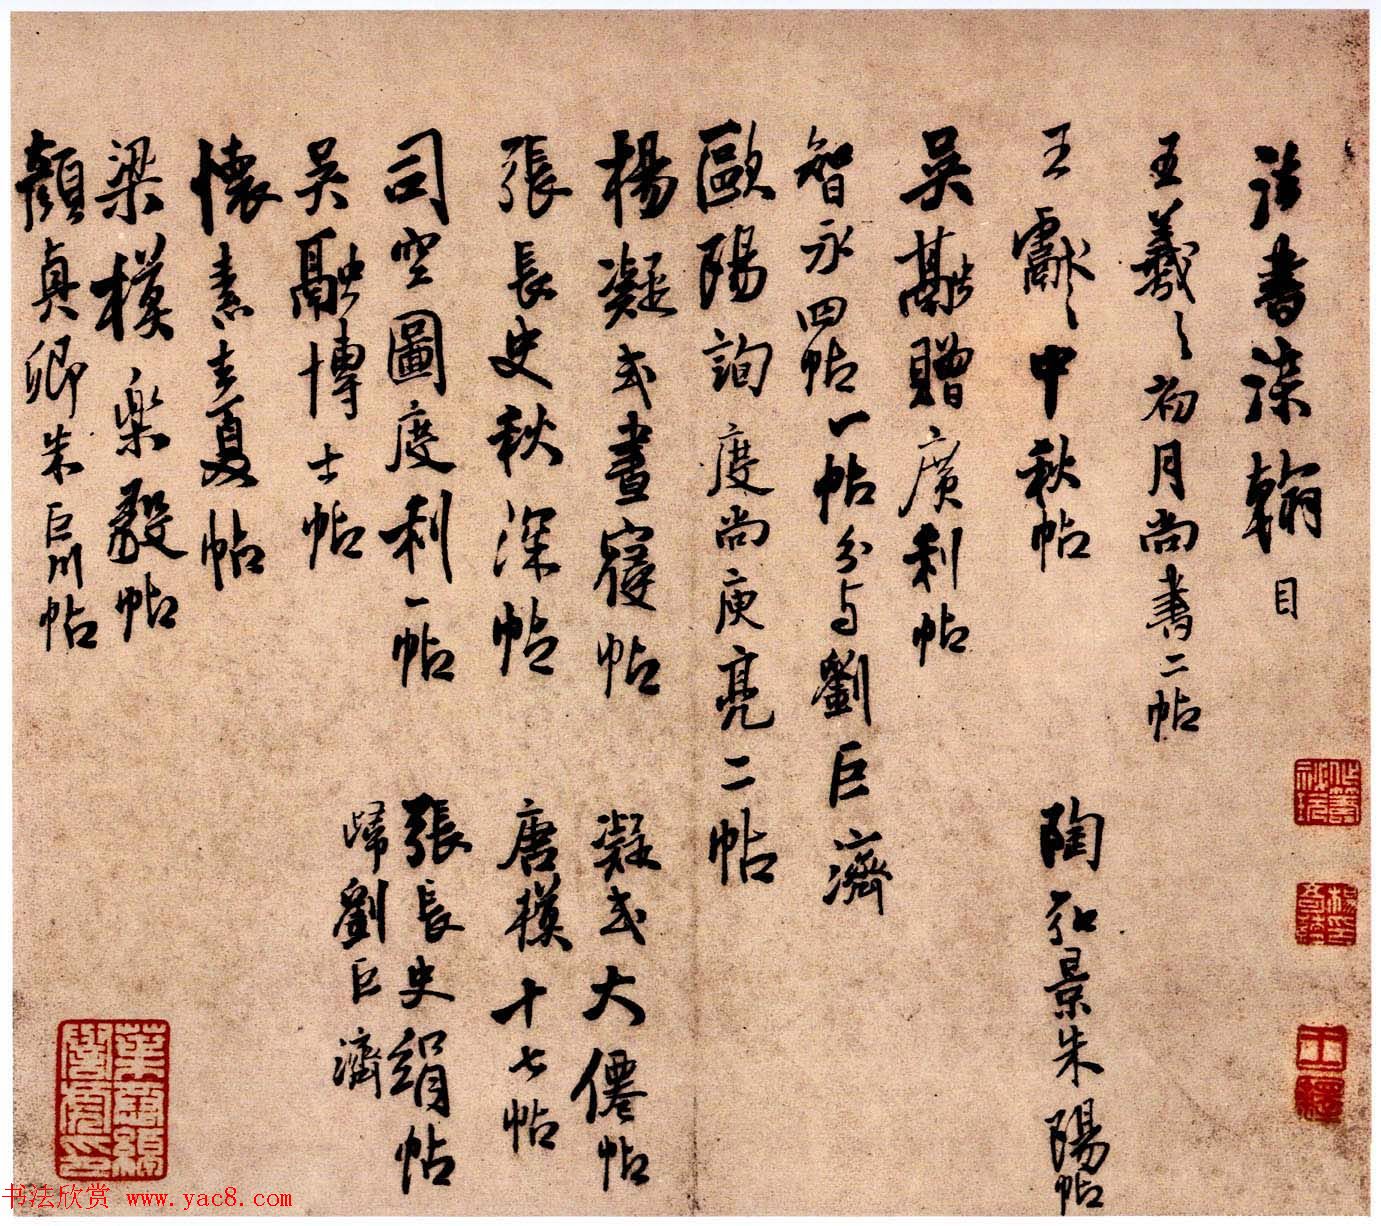 法書染翰目
王羲之初月尚書二帖
王獻之中秋帖 陶弘景朱陽帖
吳融贈廣利帖
智永四帖一帖分与劉巨濟
歐陽詢度尚庾亮二帖
楊凝式晝寢帖 凝式大僊帖
張長史秋深帖 唐模十七帖
司空圖度利一帖 張長史絹帖
歸劉巨濟
吳融博士帖
懷素去夏帖
梁模樂毅帖
顏真卿朱巨川帖
葉恭綽譽虎印
书法欣赏 www.yac8.com